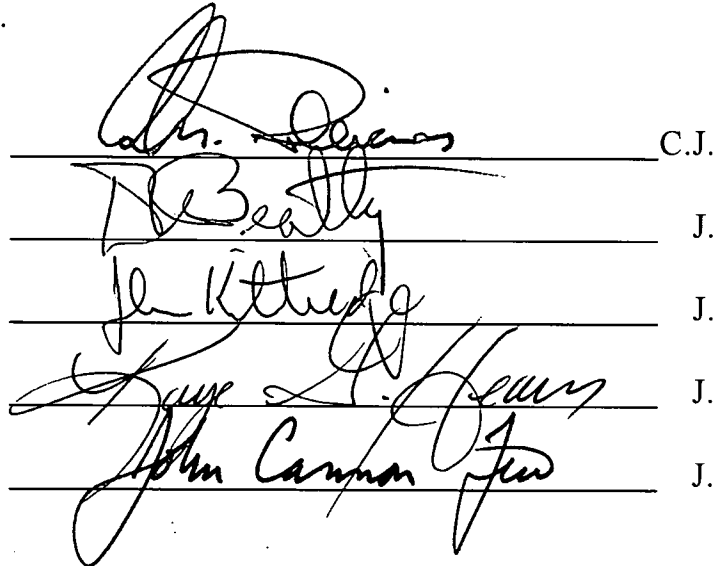 C.J.
D. Beatty J.
Jhn Kittredge J.
Kaye G. Hearn J.
John Cannon Few J.